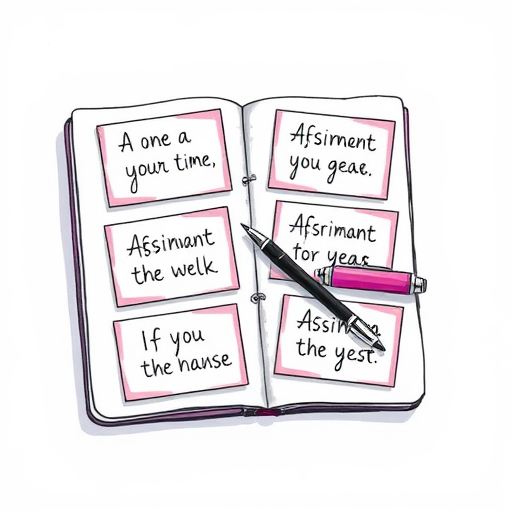 A one a
your time,
Afsiment
you geae.
Assimant
the welk
Afsrimant
for yeas
If you
the hanse
Assin
the yest.